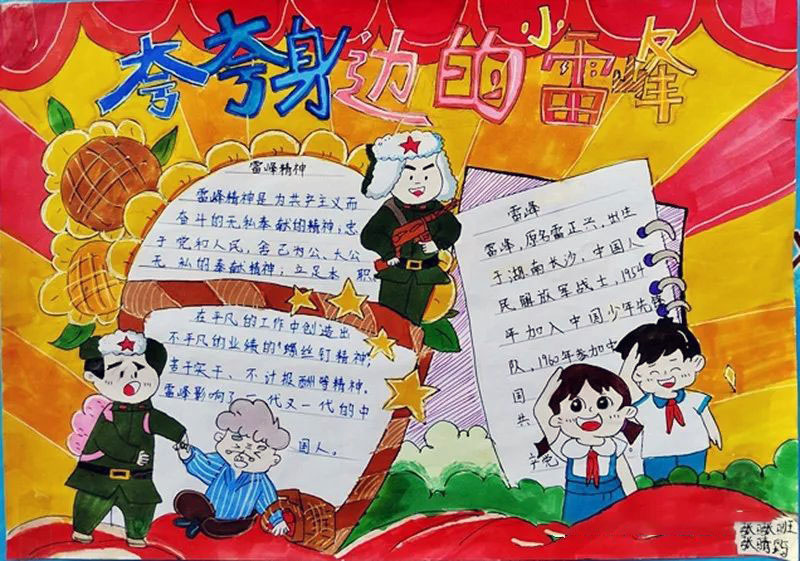 夸夸身边的小雷锋
雷峰精神
雷峰精神是为共产主义而
奋斗的无私奉献的精神;忠
于党和人民,舍己为公、大公
无私的奉献精神;立足本职
在平凡的工作中创造出
不平凡的业绩的"螺丝钉精神";
苦干实干、不计报酬等精神.
雷峰影响了一代又一代的中
国人。
雷峰
雷峰,原名雷正兴,出生
于湖南长沙,中国人
民解放军战士,1954
年加入中国少年先锋
队,1960年参加中
国
共
产党